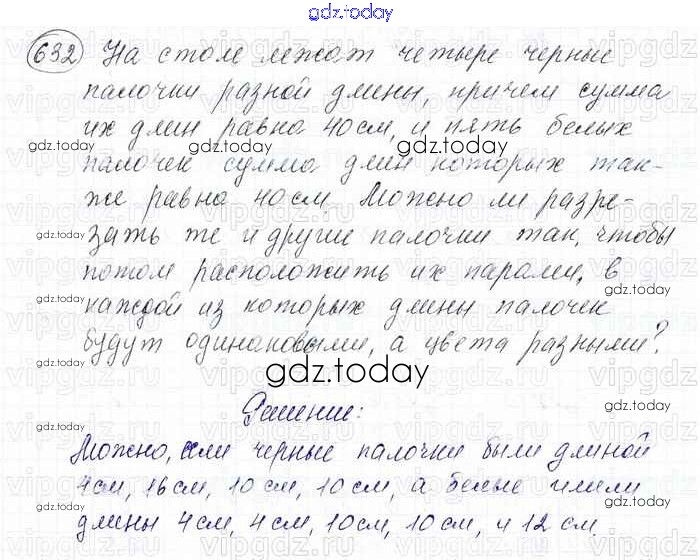 gdz.today
632 На столе лежат четыре черные
палочки разной длины, причем сумма
их длин равна 40 см, и пять белых
gdz.today gdz.today gdz.today
палочек сумма длин которых так-
же равна 40 см. Можно ли разре-
gdz.today gdz.today gdz.today
зать те и другие палочки так, чтобы
потом расположить их парами, в
gdz.today gdz.today gdz.today
каждой из которых длины палочек
будут одинаковыми, а цвета разными?
gdz.today gdz.today
gdz.today
Решение:
gdz.today gdz.today
Можно, если черные палочки были длиной
4 см, 16 см, 10 см, 10 см, а белые имели
gdz.today gdz.today gdz.today
длины 4 см, 4 см, 10 см, 10 см, и 12 см.